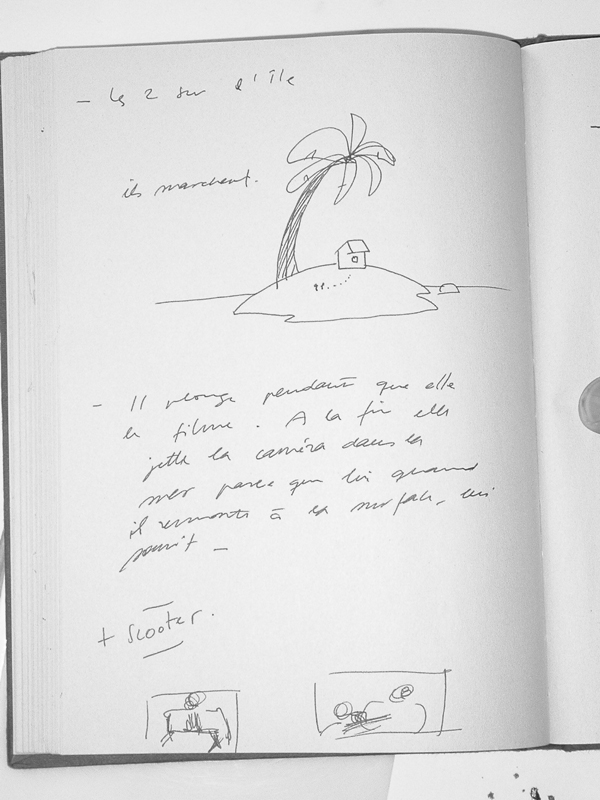 - les 2 sur l'île
ils marchent.
- Il plonge pendant que elle
le filme. A la fin elle
jette la caméra dans la
mer parce que lui quand
il remonte à la surface, lui
sourit -
+ scooter.